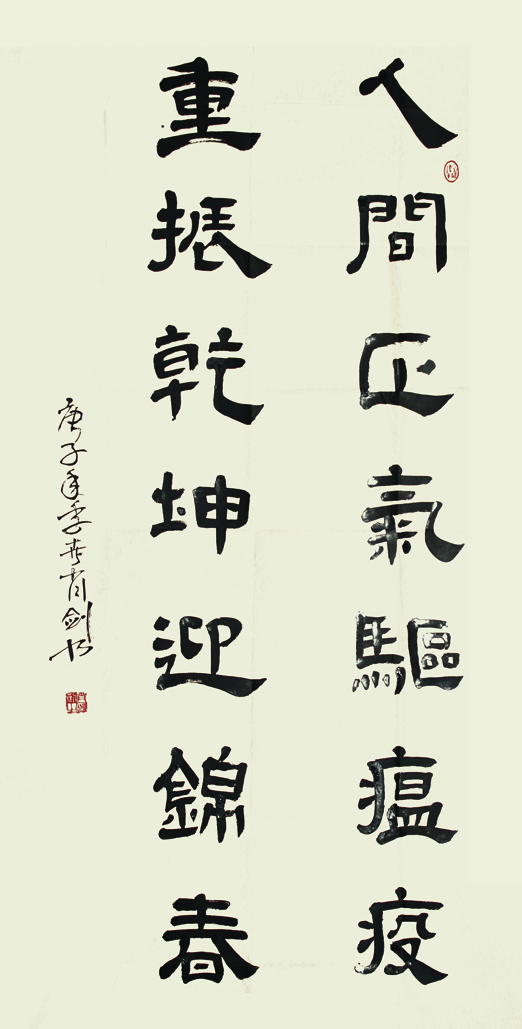 人間正氣驅瘟疫
重振乾坤迎錦春
庚子年季春肖劍书